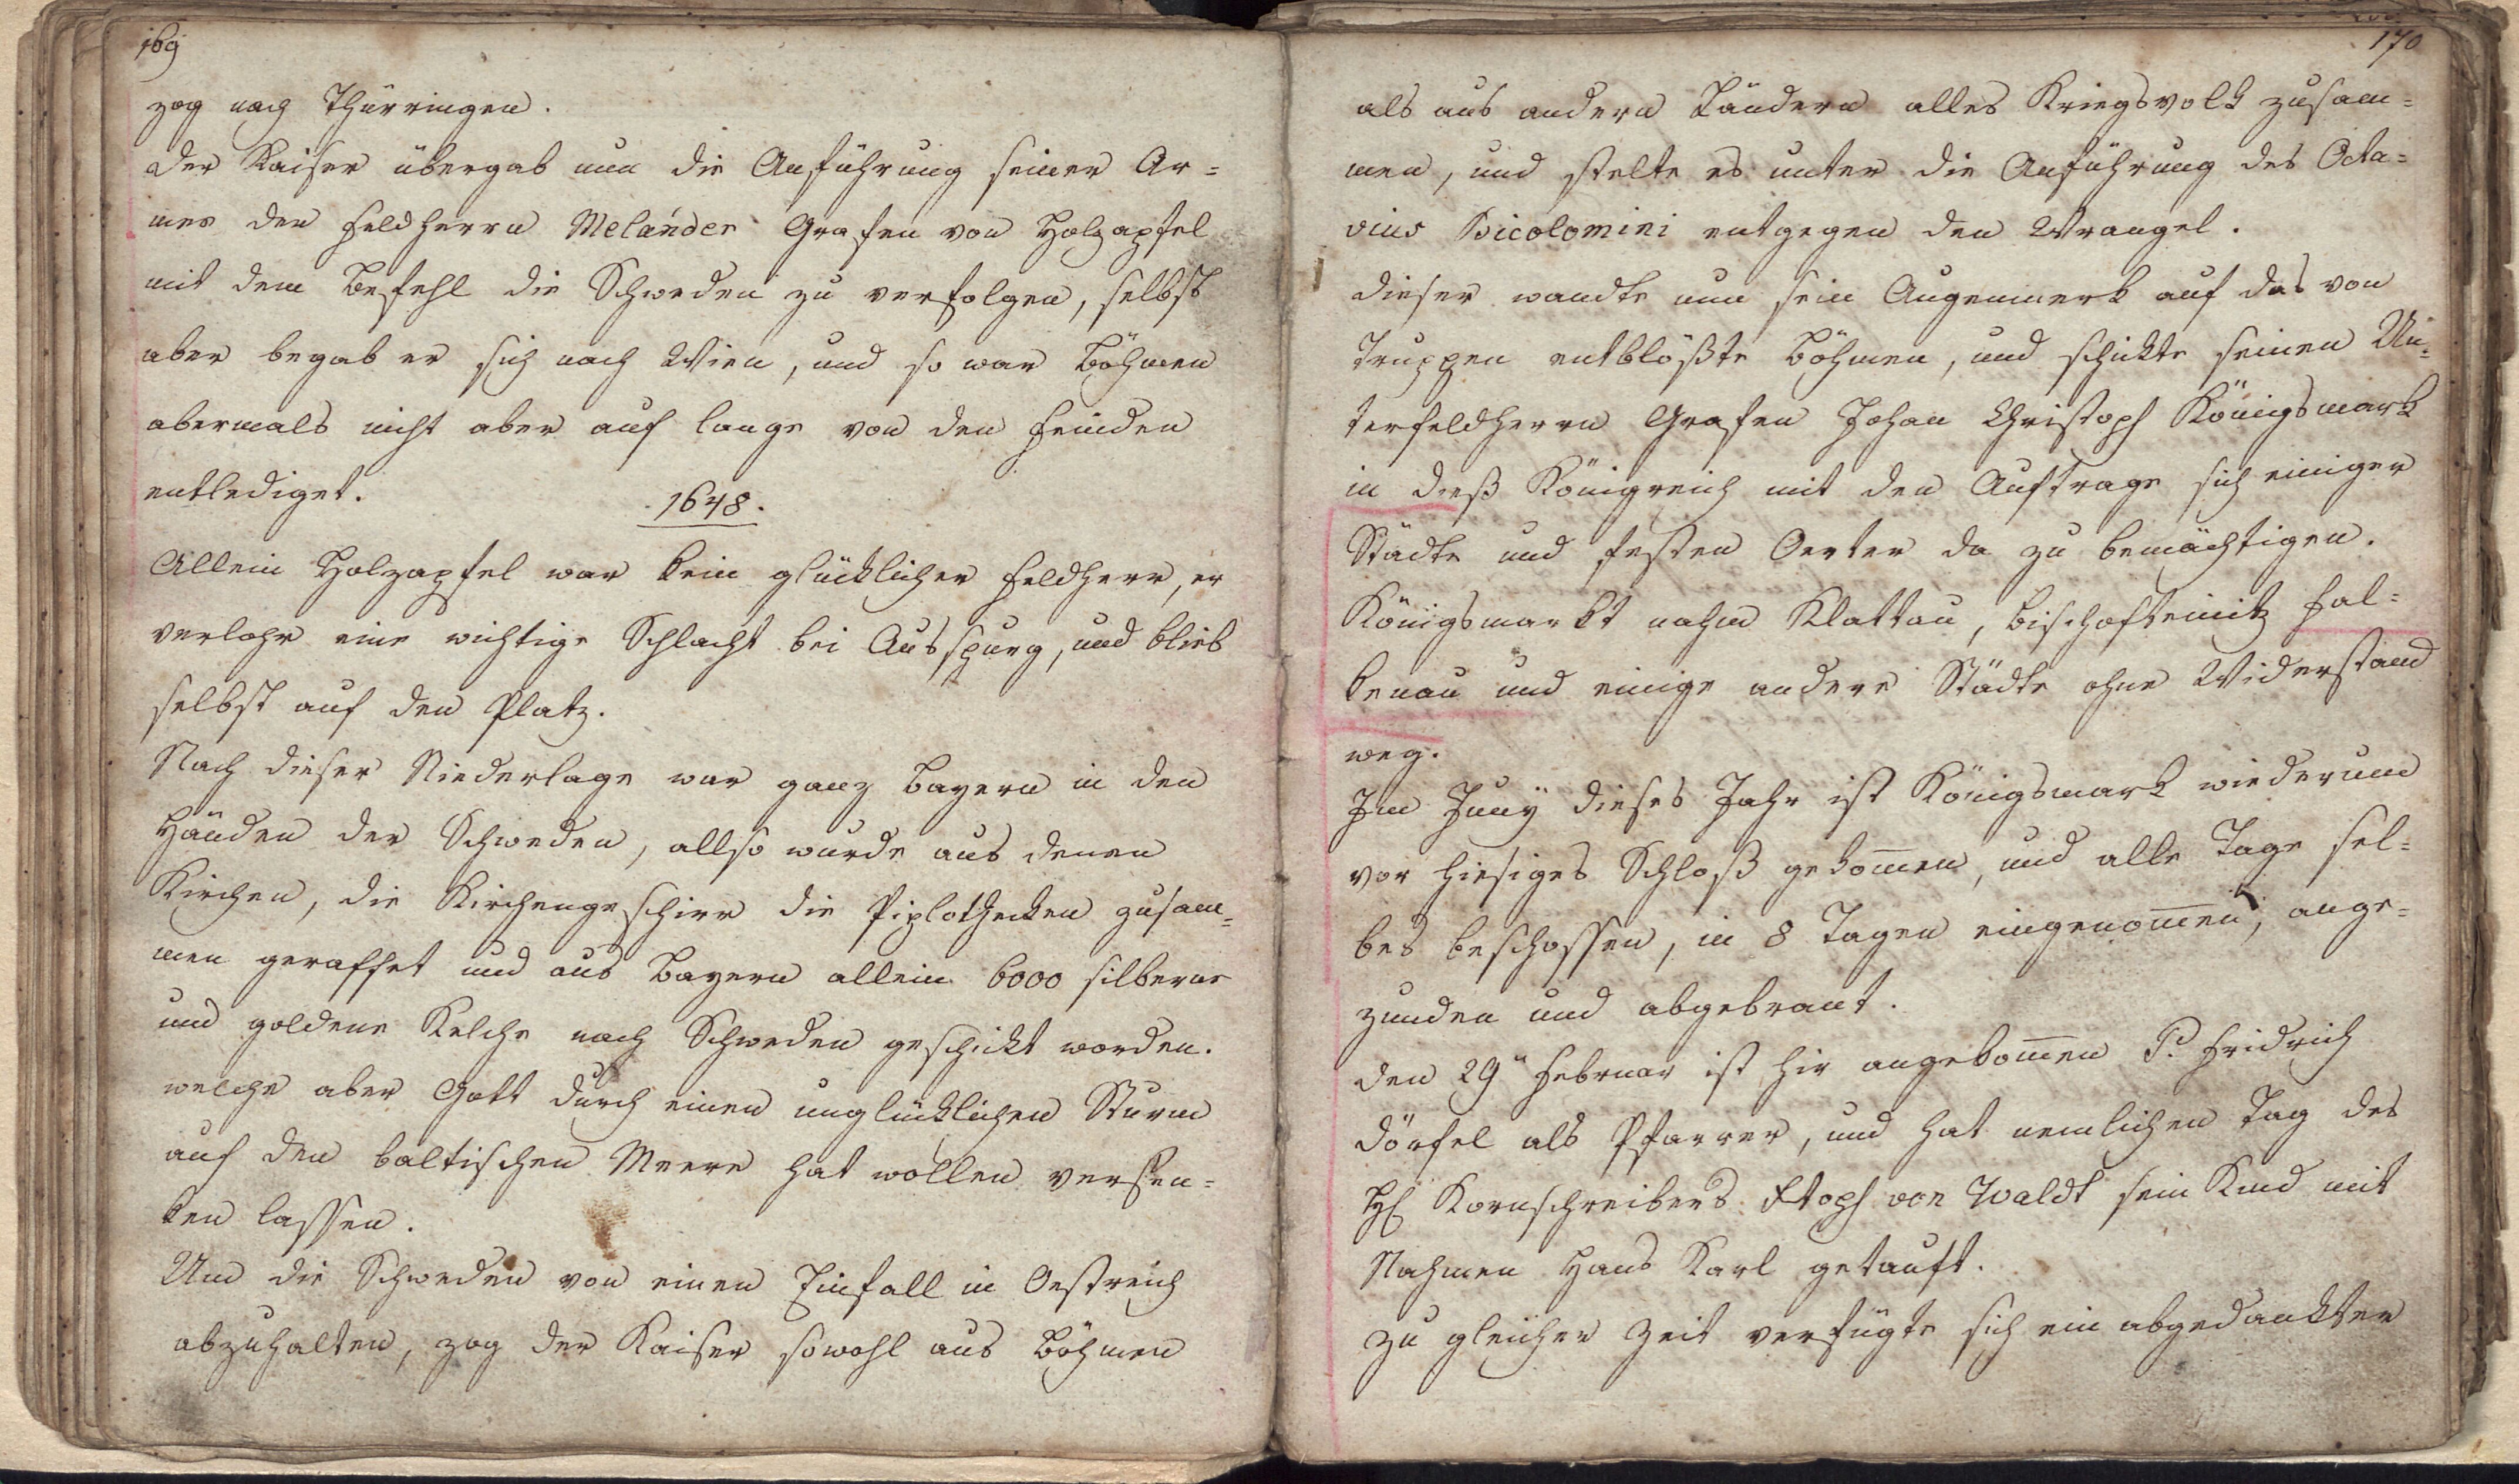 169
zog nach Thürringen.
der Kaiser übergab nun die Anführung seiner Ar=
mee den Feldherrn Melander Grafen von Holzapfel
mit dem Befehl die Schweden zu verfolgen, selbst
aber begab er sich nach Wien, und so war Böhmen
abermals nicht aber auf lange von den Feinden
entlediget.
1648.
Allein Holzapfel war kein glücklicher Feldherr, er
verlohr eine wichtige Schlacht bei Ausspurg, und blieb
selbst auf den Platz.
Nach dieser Niederlage war ganz Bayern in den
Händen der Schweden, allso wurde aus denen
Kirchen, die Kirchengeschirr die Piplothecken zusam=
men geraffet und aus Bayern allein 6000 silberne
und goldene Kelche nach Schweden geschickt worden.
welche aber Gott durch einen unglücklichen Sturm
auf den baltischen Meere hat wollen versen=
ken lassen.
Um die Schweden von einen Einfall in Oestreich
abzuhalten, zog der Kaiser sowohl aus Böhmen
170
als aus andern Ländern alles Kriegsvolk zusam=
men, und stelte es unter die Anführung des Octa=
vius Bicolomini entgegen den Wrangel.
dieser wandte nun sein Augenmerk auf das von
Truppen entblößte Böhmen, und schickte seinen Un=
terfeldherrn Grafen Johan Christoph Königsmark
in dieß Königreich mit den Auftrage sich einiger
Städte und festen Oerter da zu bemächtigen.
Königsmarkt nahm Klattau, Bischofteinitz Fal=
kenau und einige andere Städte ohne Widerstand
weg.
Im Juny dieses Jahr ist Königsmark wiederum
vor hiesiges Schloß gekom̄en, und alle Tage sel=
bes beschossen, in 8 Tagen eingenom̄en, ange=
zunden und abgebrant.
den 29 Februar ist hir angekom̄en P. Fridrich
Dörfel als Pfarrer, und hat nemlichen Tag des
H Kornschreibers Stoph von Waldt sein Kind mit
Nahmen Hans Karl getauft.
zu gleicher Zeit verfügte sich ein abgedankter